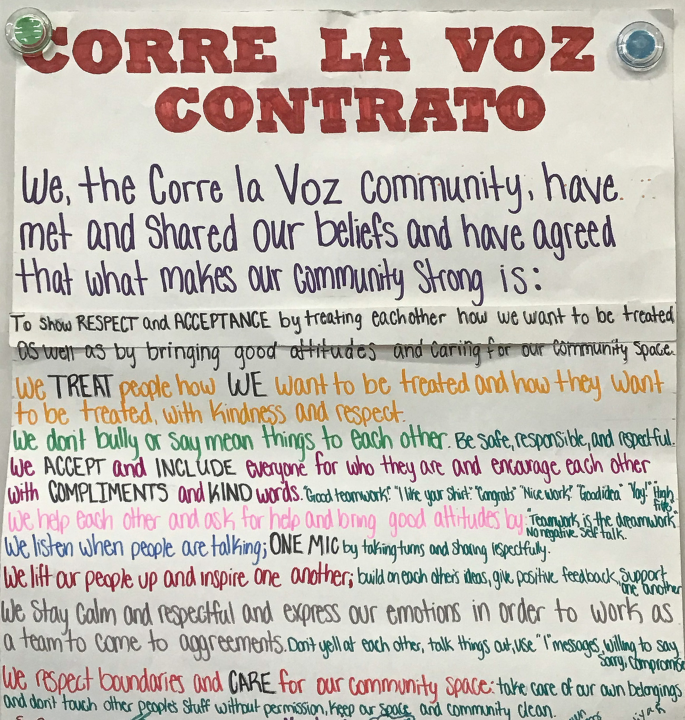 CORRE LA VOZ
CONTRATO
We, the Corre la Voz Community, have
met and Shared our beliefs and have agreed
that what makes our Community Strong is:
To show RESPECT and ACCEPTANCE by treating eachother how we want to be treated
as well as by bringing good attitudes and caring for our community space.
We TREAT people how WE want to be treated and how they want
to be treated, with kindness and respect.
We don't bully or say mean things to each other. Be safe, responsible, and respectful.
We ACCEPT and INCLUDE everyone for who they are and encourage each other
with COMPLIMENTS and KIND words. "Good teamwork!" "I like your shirt." "Congrats" "Nice work" "Good idea" "Yay!" "High five"
We help each other and ask for help and bring good attitudes by: "Teamwork is the dreamwork"
No negative self talk.
We listen when people are talking; ONE MIC by taking turns and sharing respectfully.
We lift our people up and inspire one another; build on each other's ideas, give positive feedback, support one another
We Stay Calm and respectful and express our emotions in order to work as
a team to come to aggreements. Don't yell at each other, talk things out, use "I" messages, willing to say
sorry, compromise
We respect boundaries and CARE for our community space: take care of our own belongings
and don't touch other peoples stuff without permission, keep our space and community clean.